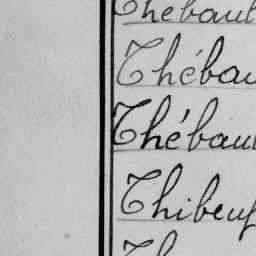 Thébaul
Thébau
Thébau
Thibeuf
Th